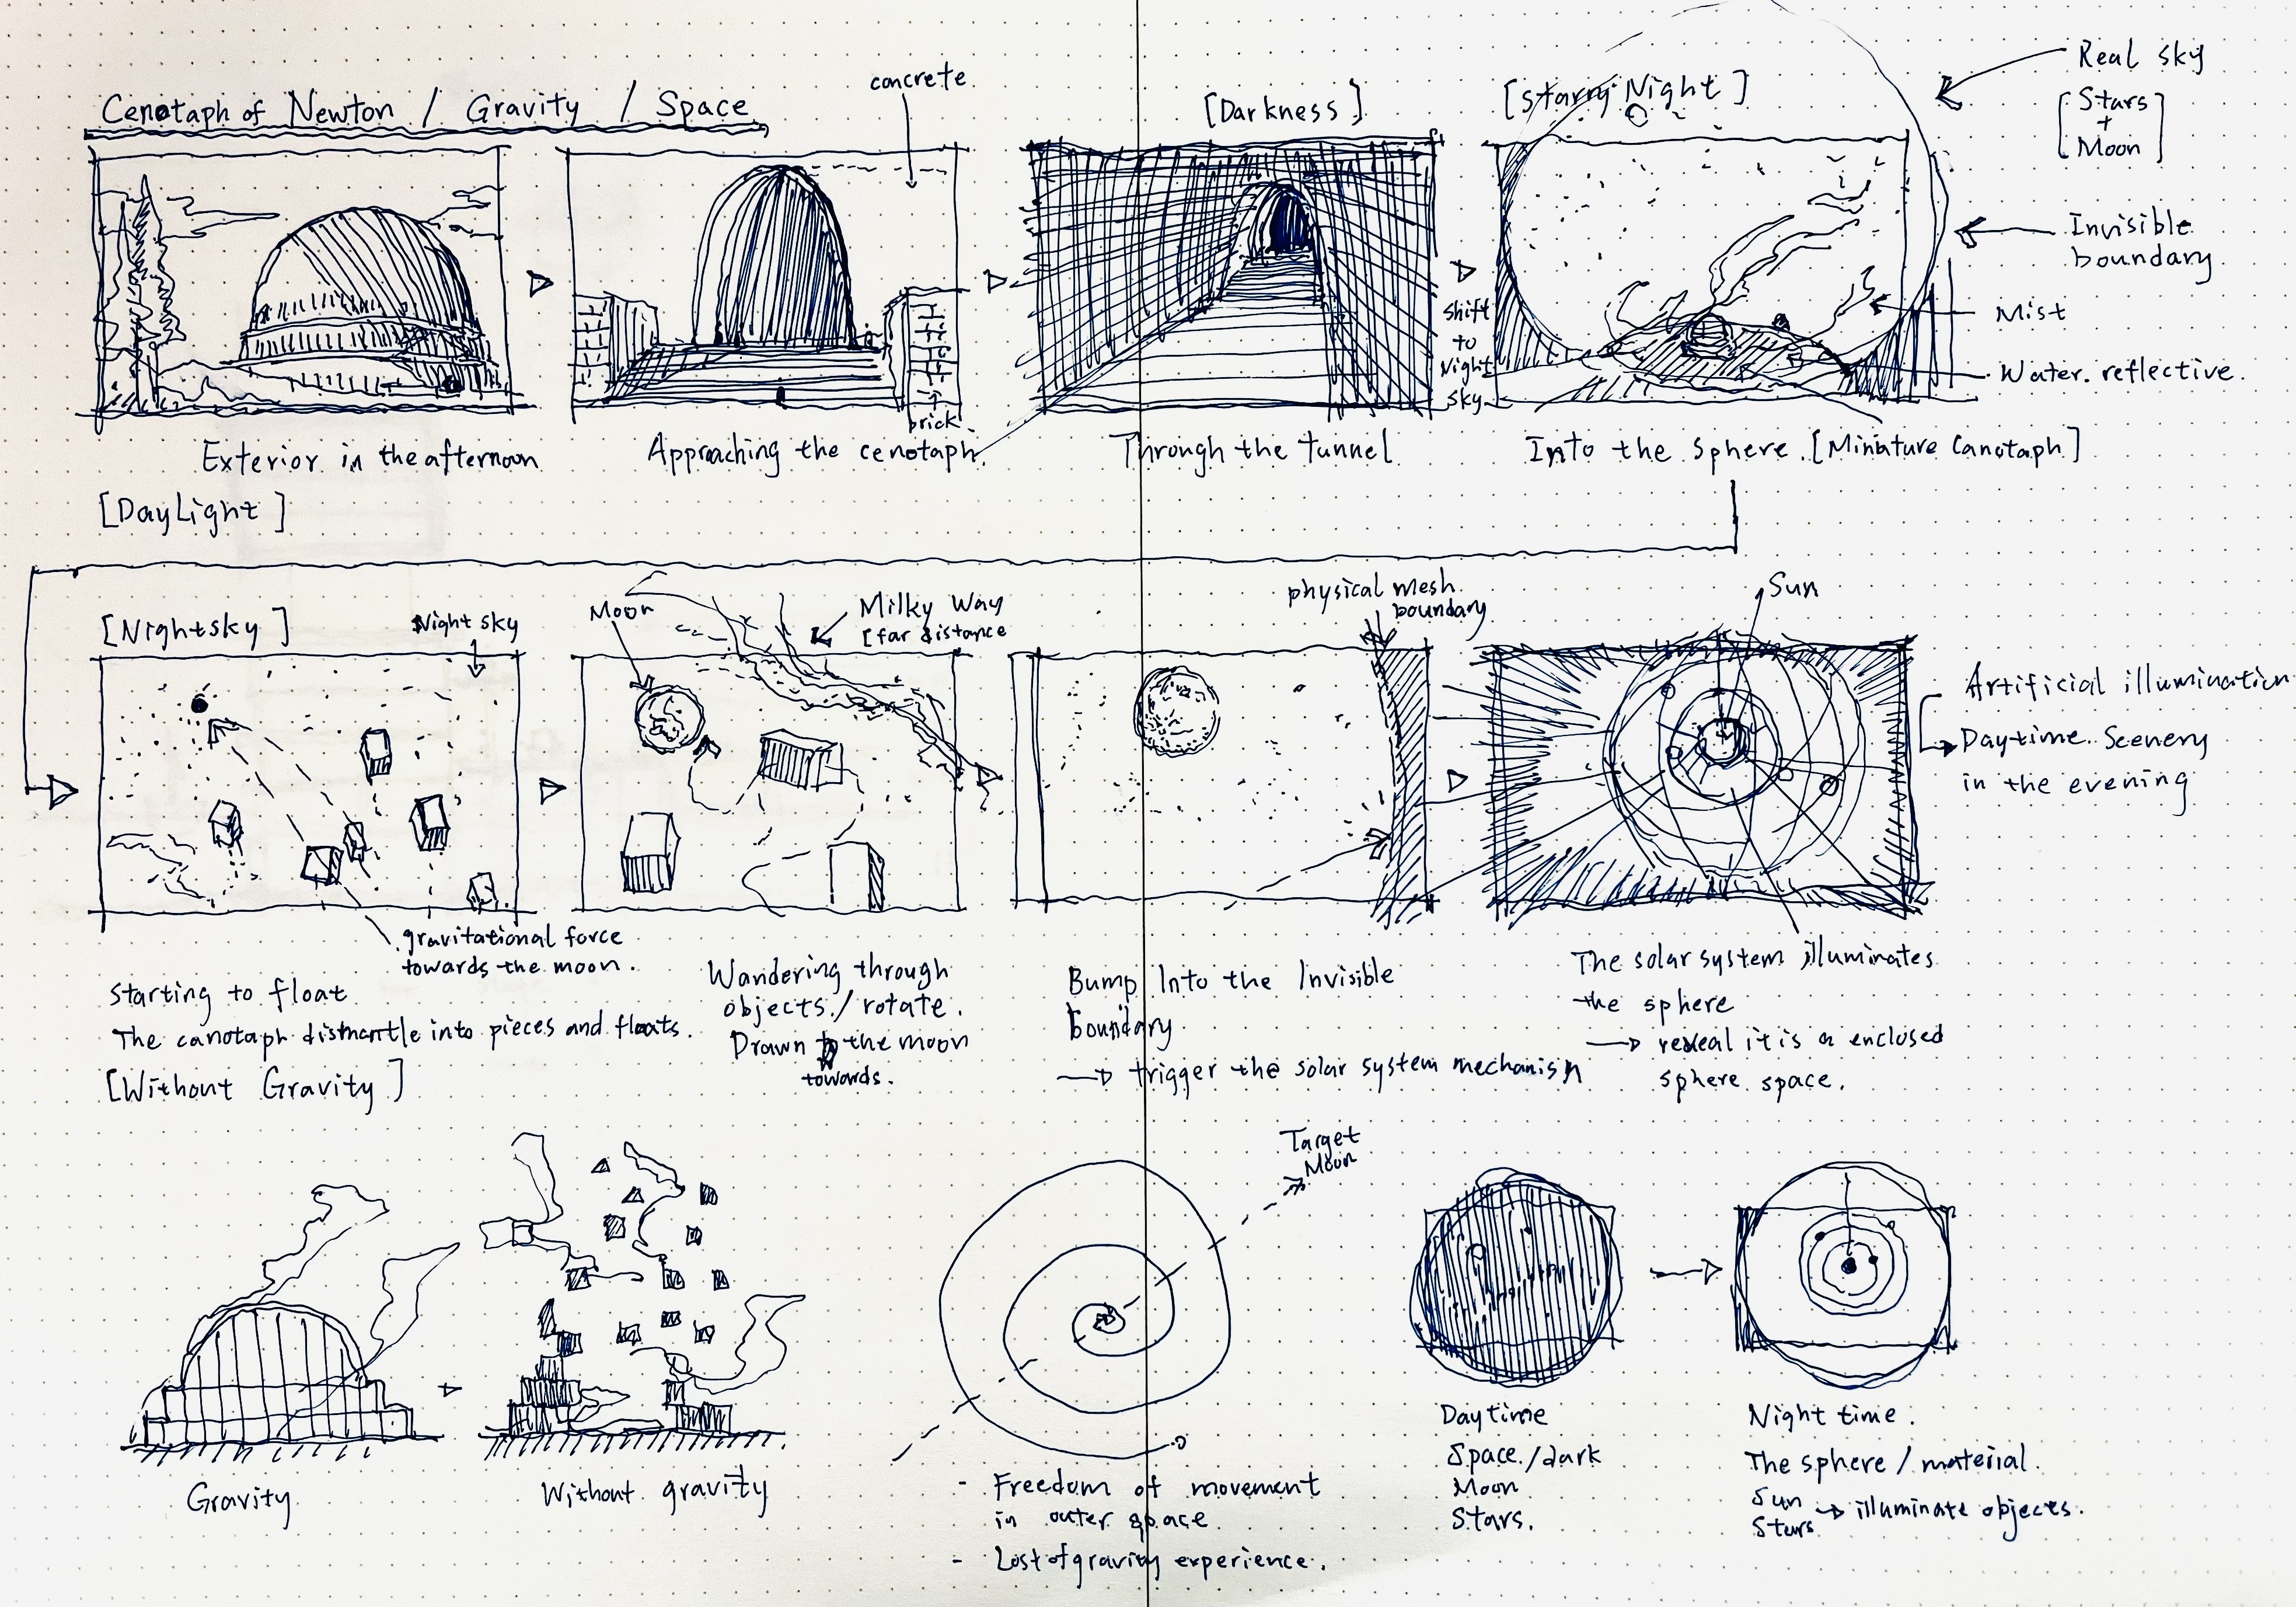 Cenotaph of Newton / Gravity / Space
concrete
[Darkness]
[Starry Night]
Real sky
[Stars
+
Moon]
Invisible
boundary
Mist
Water. reflective.
shift
to
Night
sky
brick
Exterior in the afternoon
Approaching the cenotaph.
Through the tunnel
Into the sphere. [Miniature Canotaph]
[DayLight]
[Nightsky]
Night sky
Moon
Milky Way
[far distance
physical mesh
boundary
Sun
Artificial illumination
Daytime Scenery
in the evening
gravitational force
towards the moon.
Starting to float
The canotaph dismantle into pieces and floats.
[Without Gravity]
Wandering through
objects / rotate.
Drawn to the moon
towards.
Bump Into the Invisible
boundary
trigger the solar system mechanism
The solar system illuminates
the sphere
reveal it is a enclosed
sphere space.
Gravity
Without gravity
Target
Moon
- Freedom of movement
in outer space
- Lost of gravity experience.
Daytime
Space / dark
Moon
Stars.
Night time.
The sphere / material.
Sun
Stars
illuminate objects.